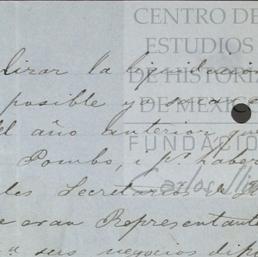 CENTRO DE
ESTUDIOS
DE HISTORIA
DE MEXICO
FUNDACIÓ
Carlos Sli
lizar la liquidacion
posible ya sea
el año anterior, que
Pombo, i pr haber
les Secretario
e eran Representante
sus negocios dip